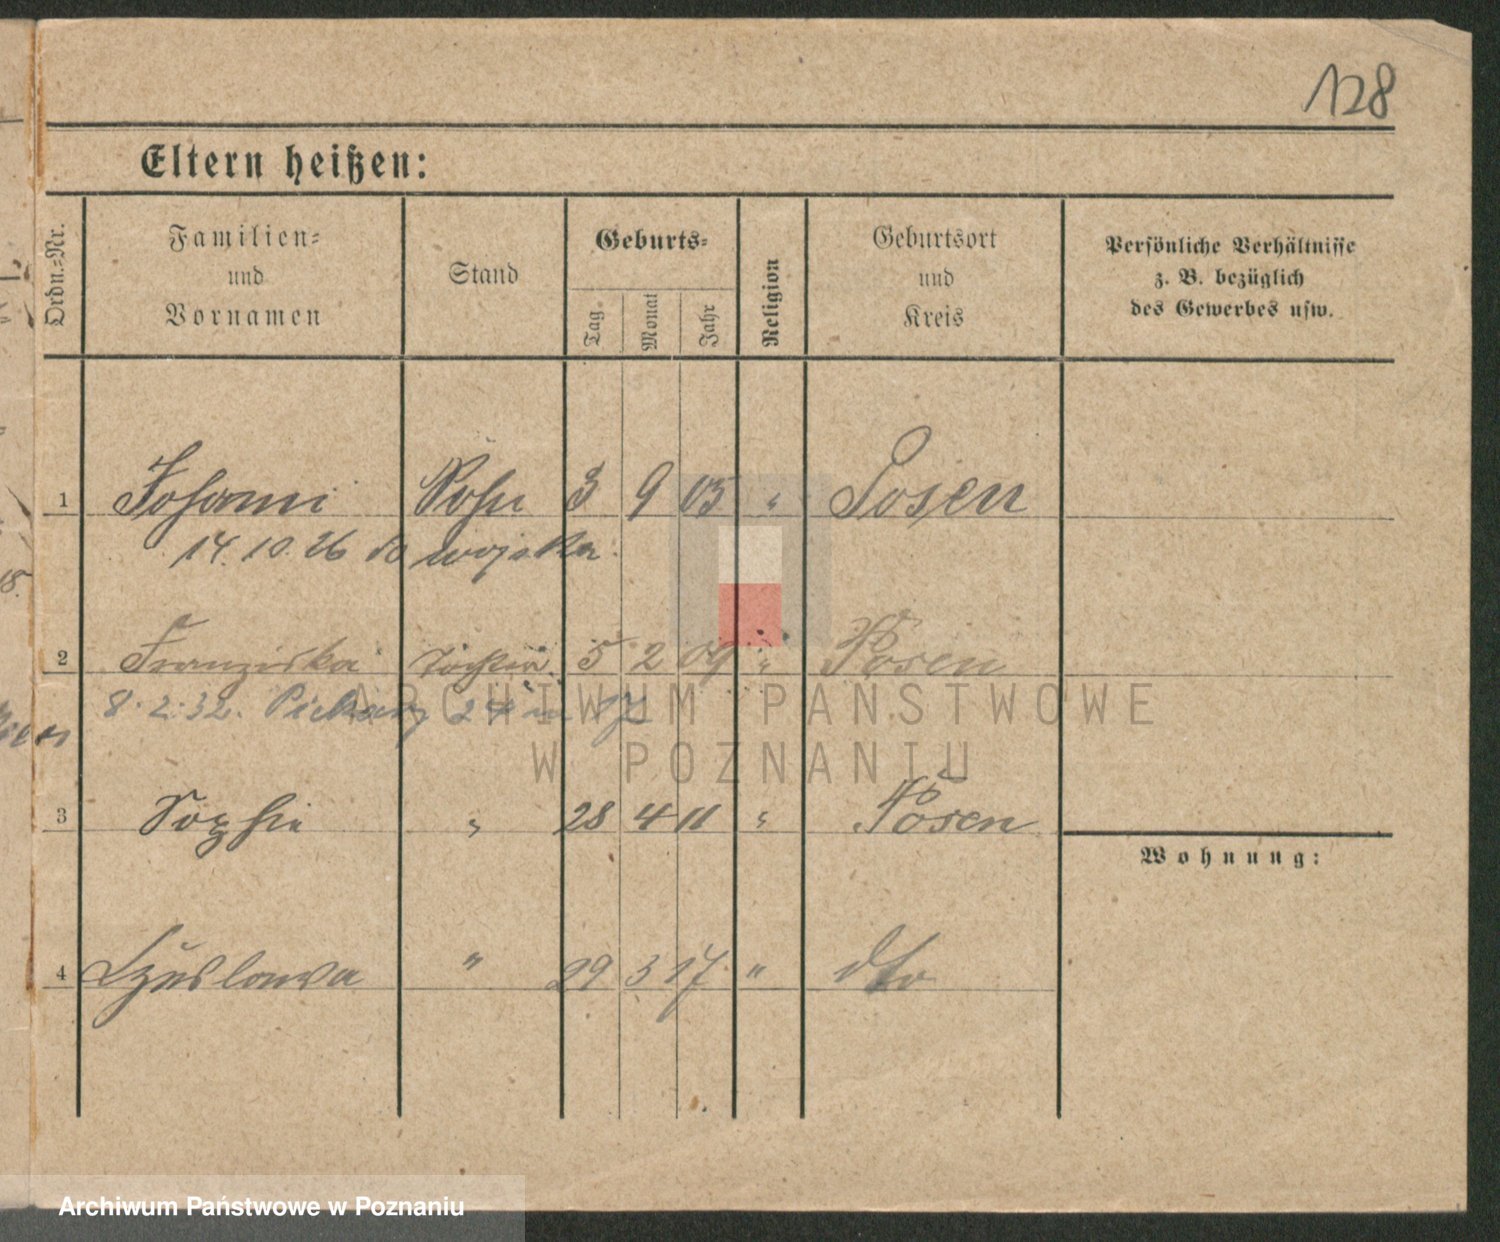 128
Eltern heißen:
Ordn.-Nr.
Familien-
und
Vornamen
Stand
Geburts-
Tag.
Monat
Jahr
Religion
Geburtsort
und
Kreis
Persönliche Verhältnisse
z. B. bezüglich
des Gewerbes usw.
1 Johann Sohn 3 9 05 " Posen
14. 10. 26 do wojska.
2 Franziska Tochter 5 2 09 " Posen
8.2.32. Piekary
3 Sophie " 28 4 11 " Posen
Wohnung:
4 Czeslawa " 29 3 17 " dto
ARCHIWUM PAŃSTWOWE
W POZNANIU
Archiwum Państwowe w Poznaniu